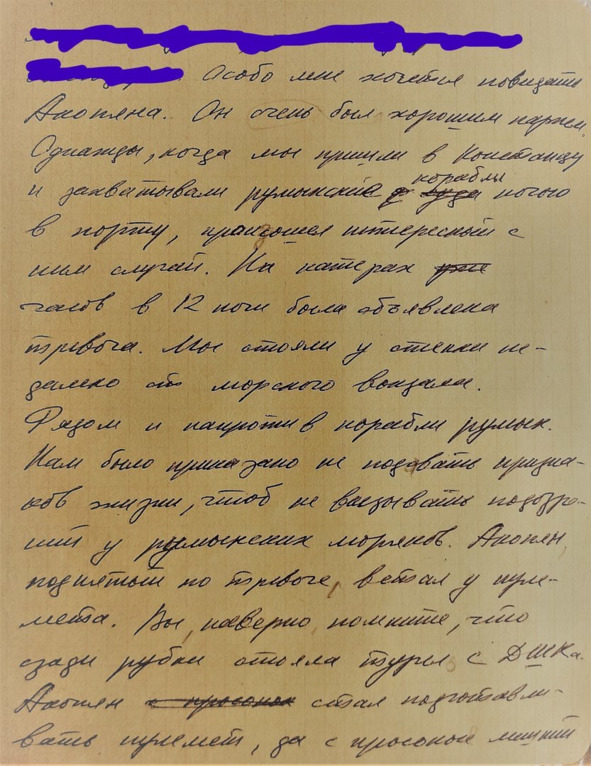 Особо мне хочется повидать
Акопяна. Он очень был хорошим парнем.
Однажды, когда мы пришли в Констанцу
и захватывали румынские корабли ночью
в порту, произошел интересный с
ним случай. На катерах
часов в 12 ночи была объявлена
тревога. Мы стояли у стенки не-
далеко от морского вокзала.
Рядом и напротив корабли румын.
Нам было приказано не подавать призна-
ков жизни, чтоб не вызывать подозре-
ний у румынских моряков. Акопян,
поднятый по тревоге, встал у пуле-
мета. Вы, наверно, помните, что
сзади рубки стояла турель с ДШКа.
Акопян стал подготавли-
вать пулемет, да с просонок